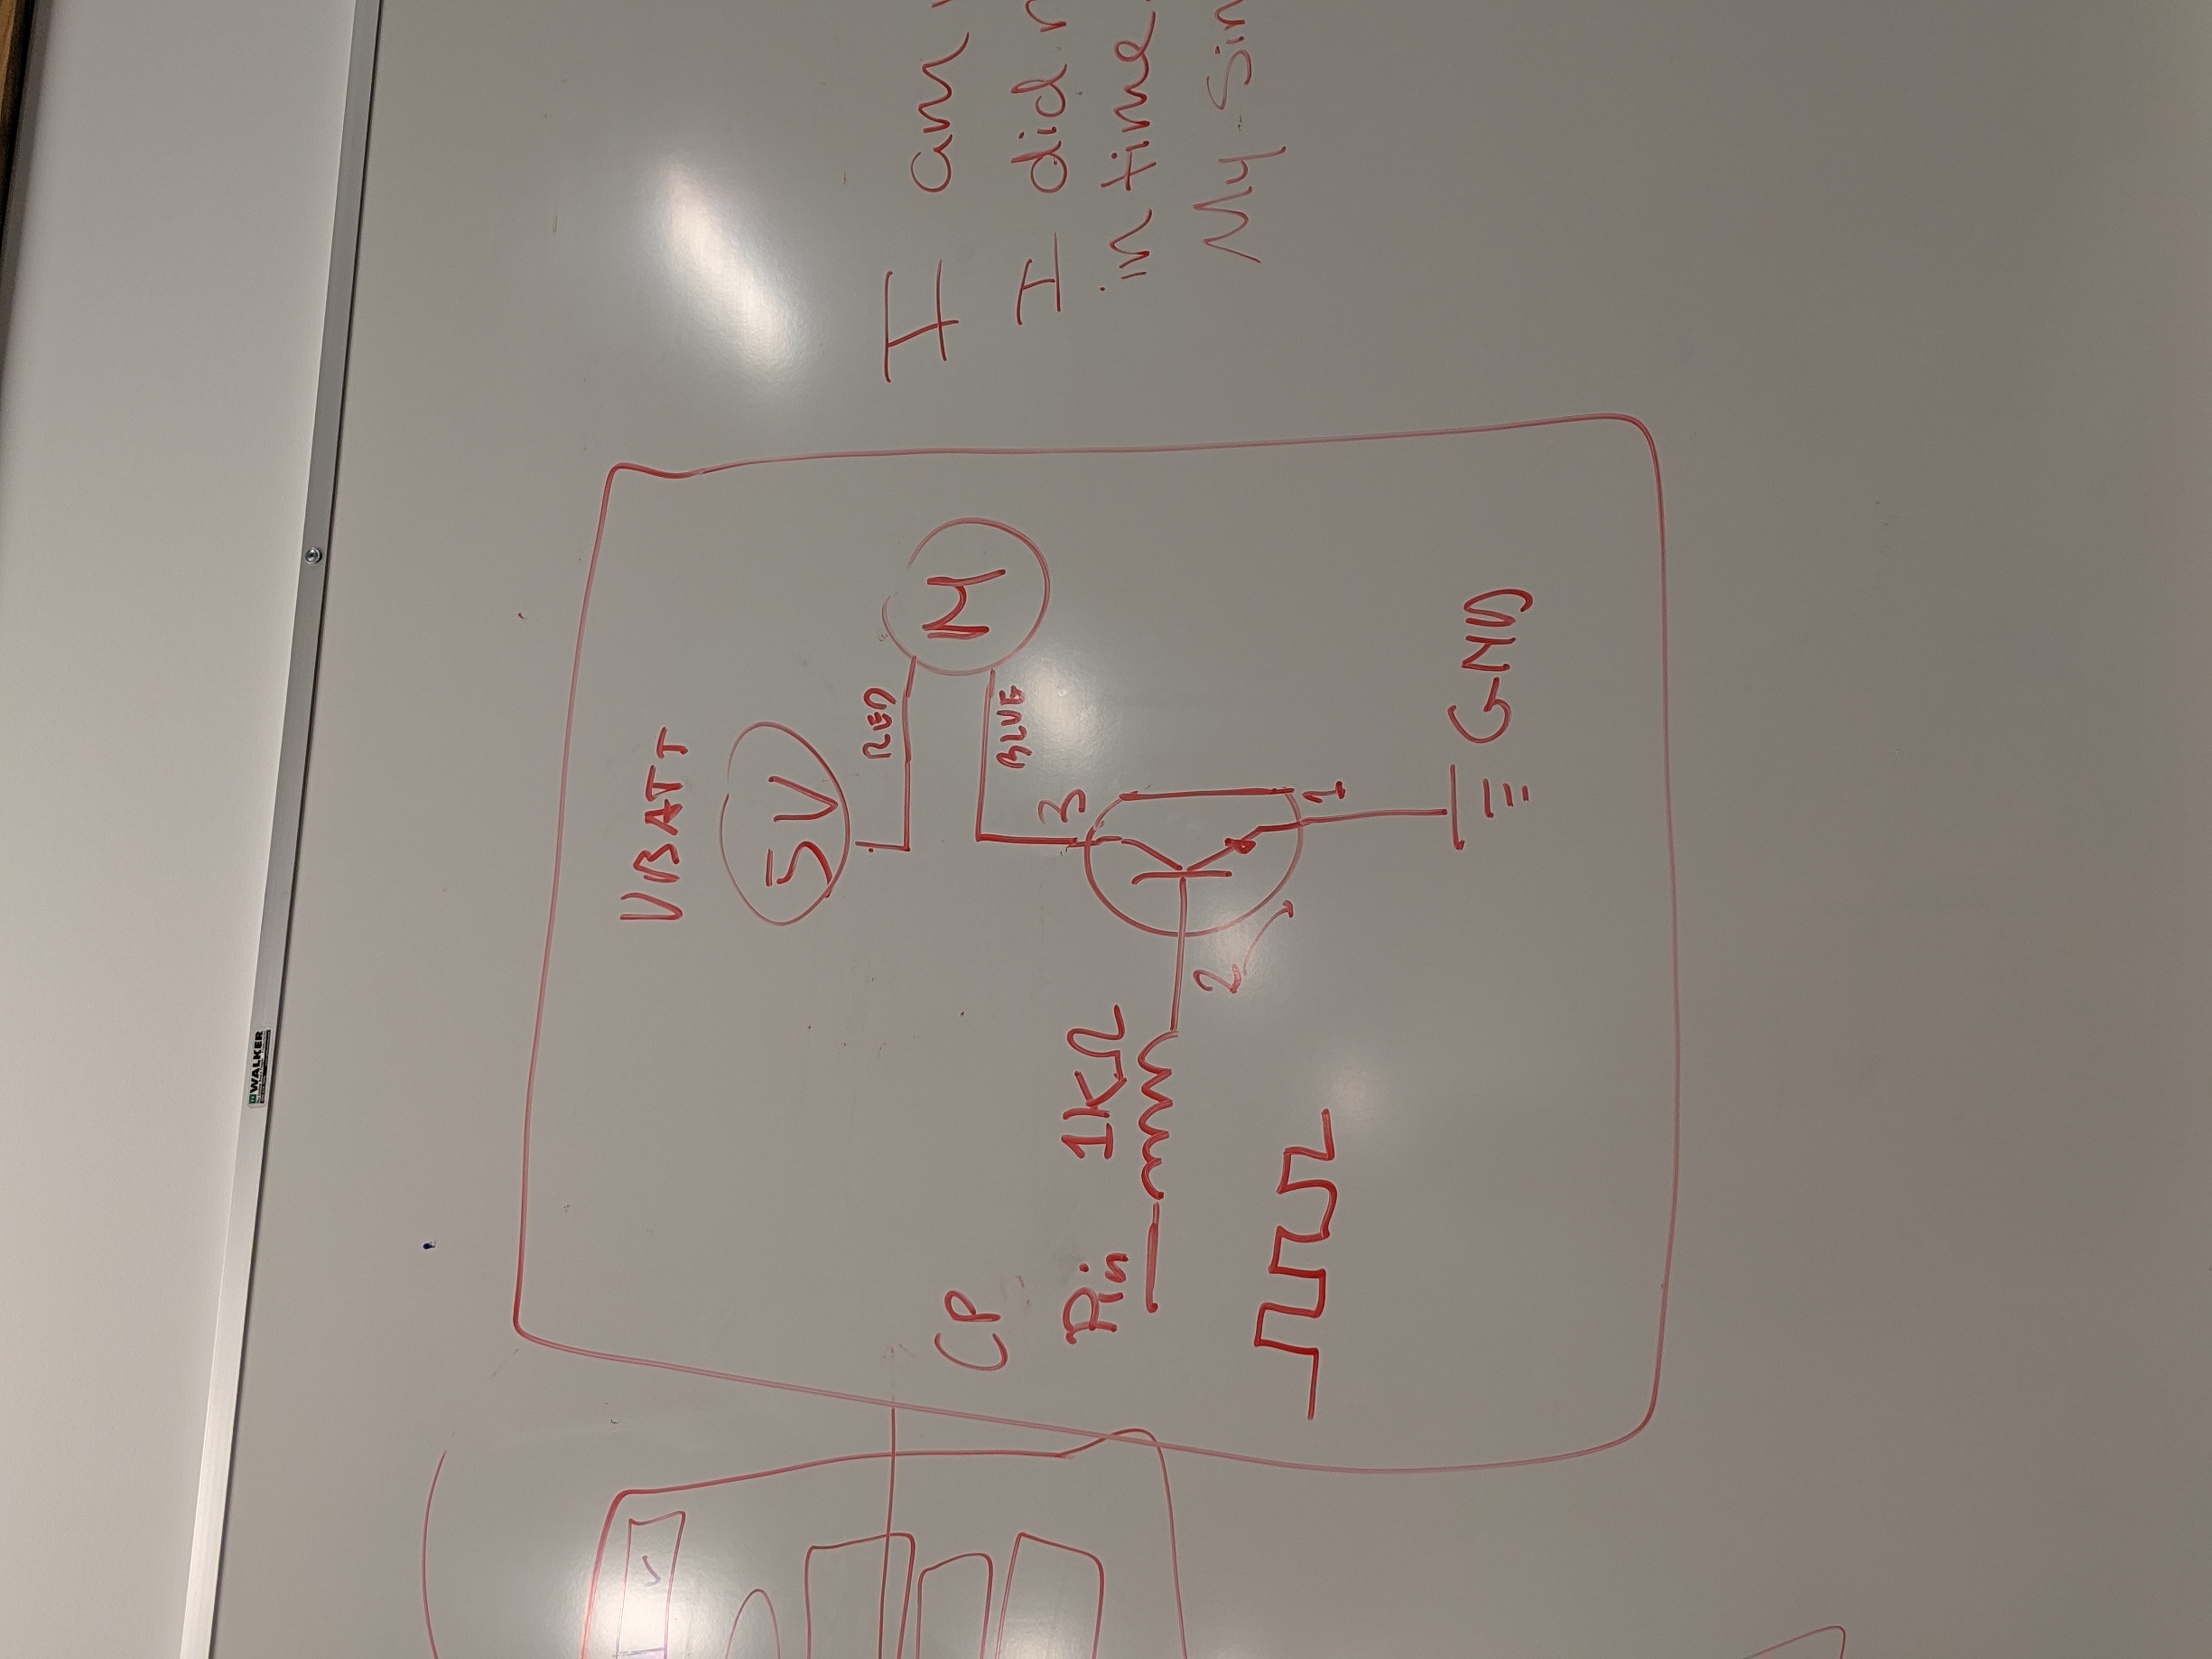 WALKER
VBATT
5V
RED
M
BLUE
CP
3
Pin 1KΩ
2
1
GND
I am
I did
in time.
My Sin